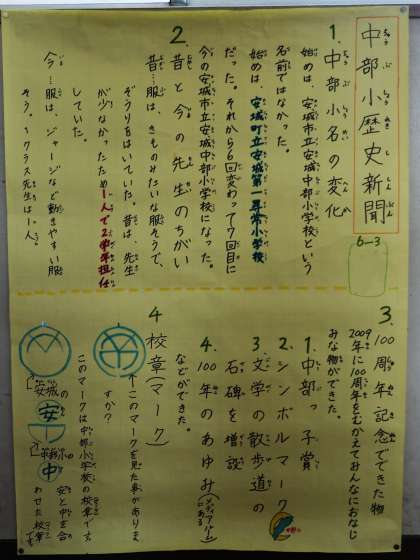 中部小歴史新聞
6-3
1.中部小名の変化
始めは、安城市立安城中部小学校という
名前ではなかった。
始めは、安城町立安城第一尋常小学校
だった。それから6回変わって7回目に
今の安城市立安城中部小学校になった。
2.昔と今の先生のちがい
昔…服は、きものみたいな服そうで、
ぞうりをはいていた。昔は、先生
が少なかったため1人で2学年担任
していた。
今…服は、ジャージなど動きやすい服
そう。1クラス先生は1人。
3.100周年記念でできた物
2009年に100周年をむかえてみんなにおなじ
みな物ができた。
1.中部っ子賞
2.シンボルマーク
3.文学の散歩道の
石碑を増設
4.100年のあゆみ
などができた。
4校章(マーク)
↑このマークを見た事がありま
すか?
このマークは中部小学校の校章です
安城の
安
中
安と中を合
わせた校章
です